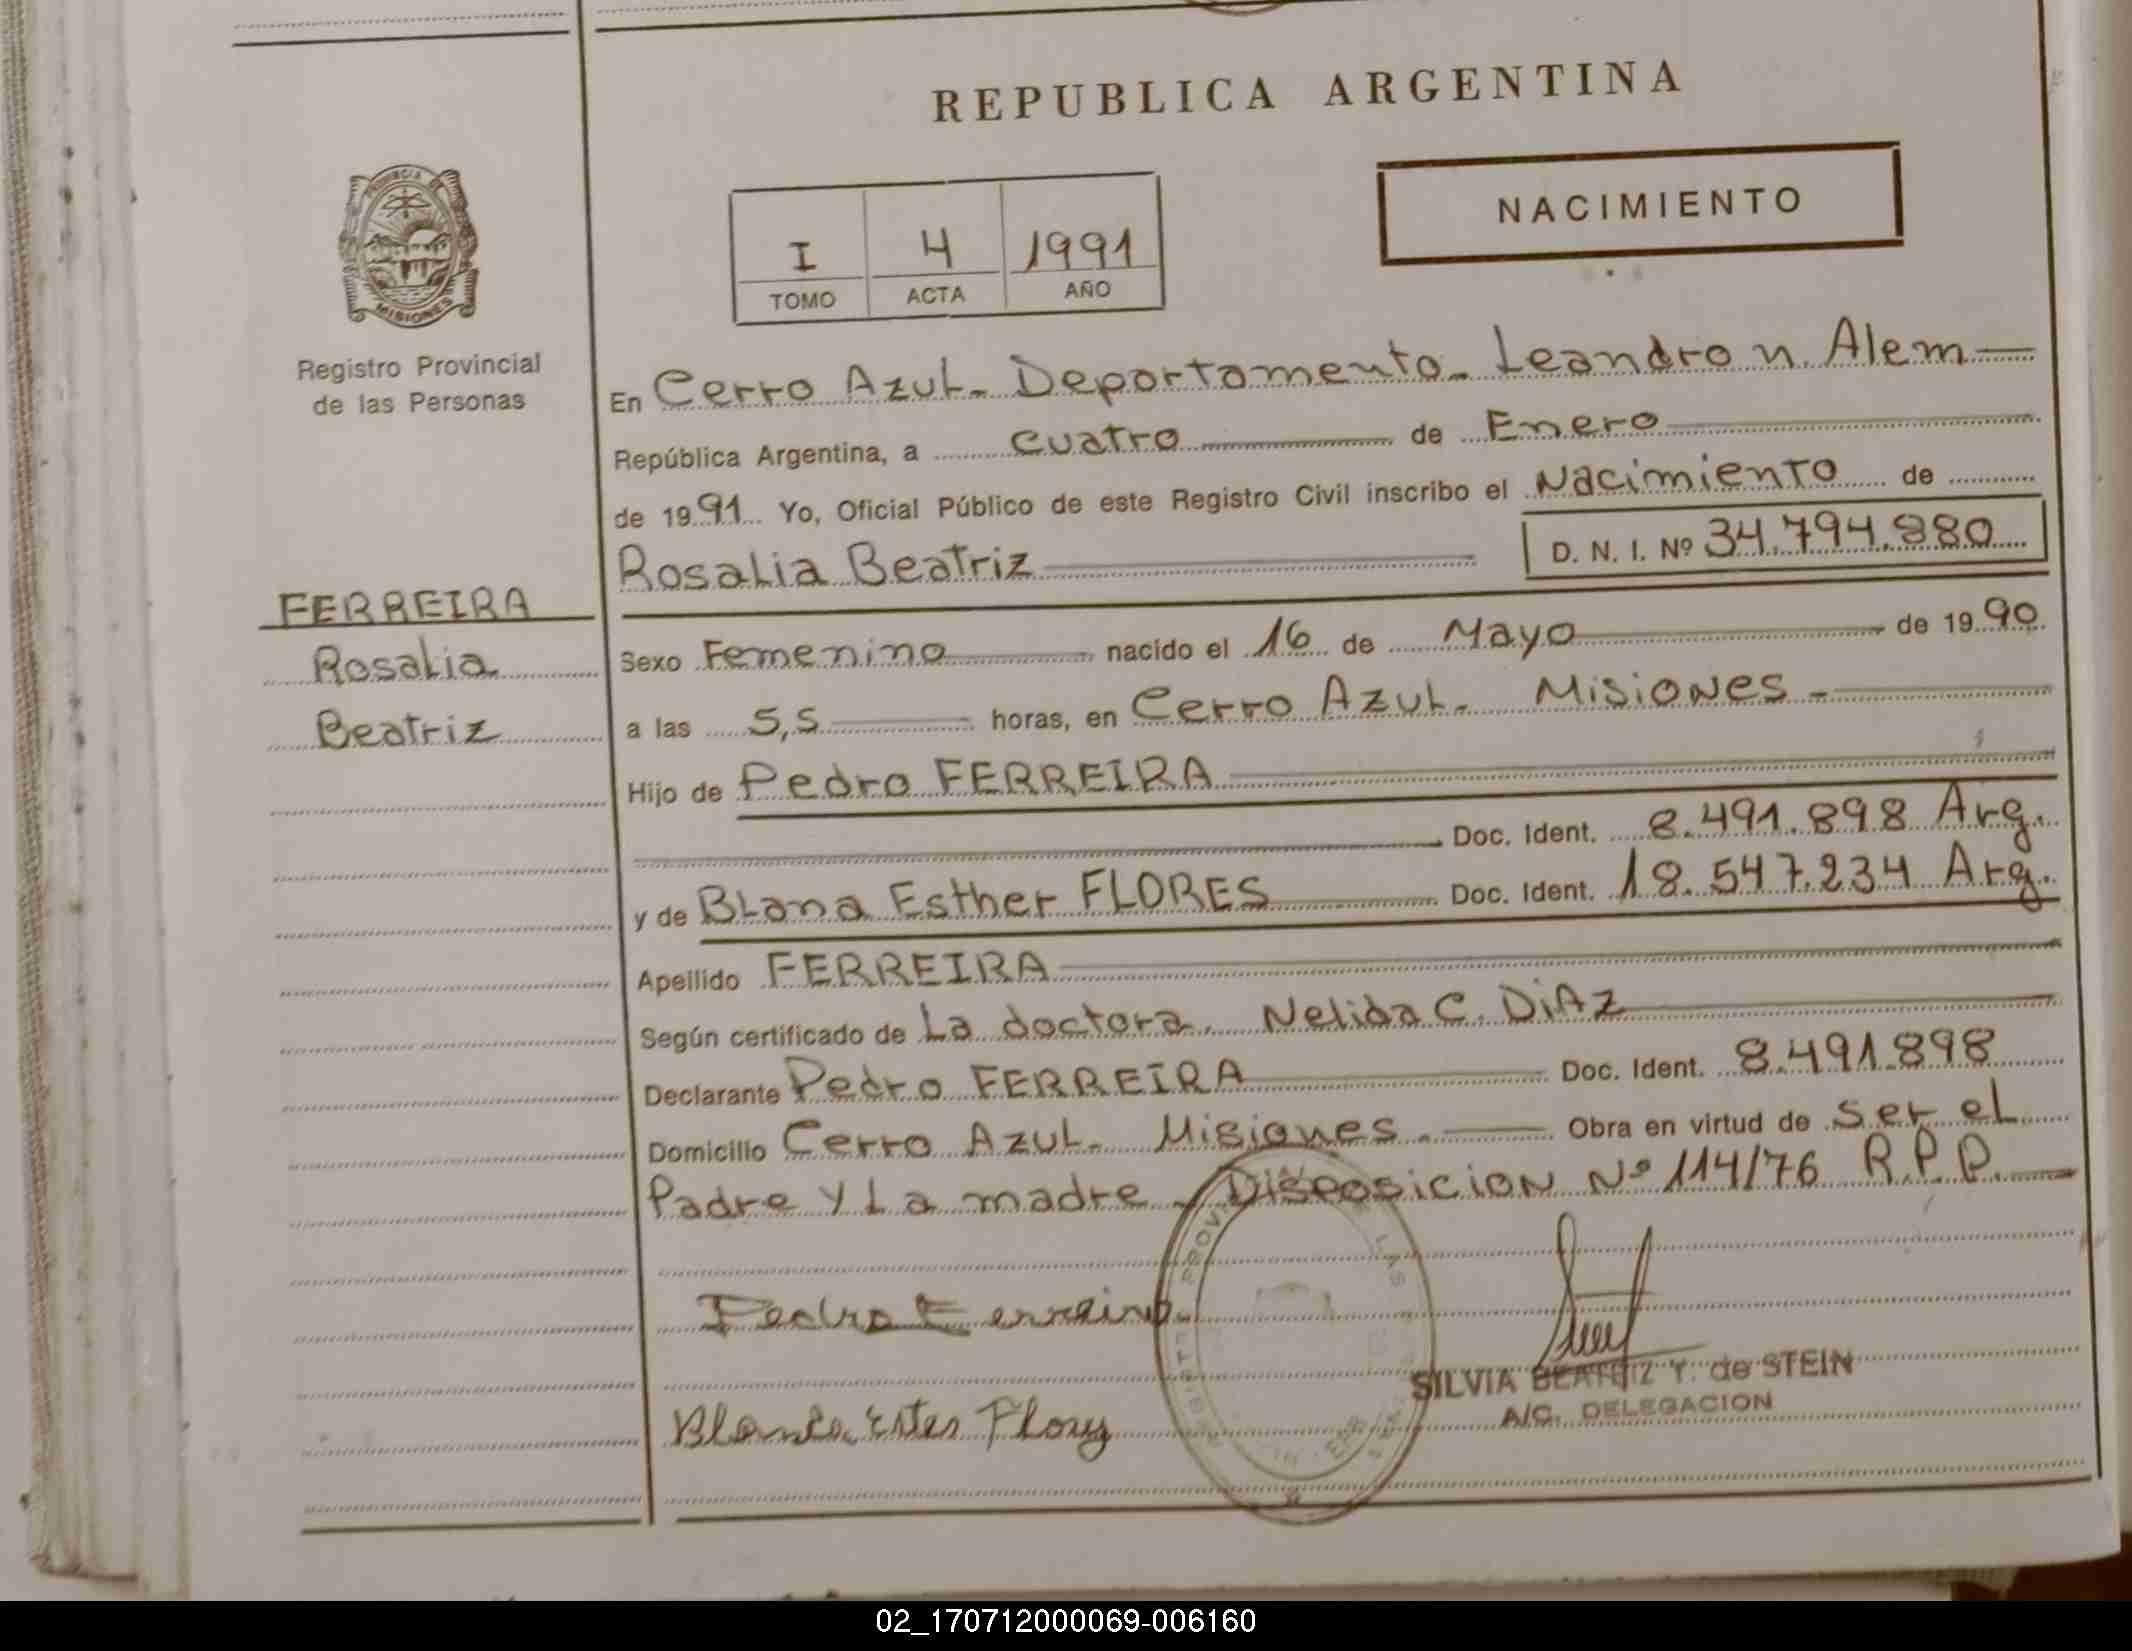 REPUBLICA ARGENTINA
NACIMIENTO
I 4 1991
TOMO ACTA AÑO
PROVINCIA DE
MISIONES
Registro Provincial
de las Personas
FERREIRA
Rosalia
Beatriz
En Cerro Azul. Departamento. Leandro n. Alem
República Argentina, a cuatro de Enero
de 1991 Yo, Oficial Público de este Registro Civil inscribo el Nacimiento de
Rosalia Beatriz D. N. I. Nº 34.794.880
Sexo Femenino nacido el 16 de Mayo de 1990
a las 5,5 horas, en Cerro Azul. Misiones -
Hijo de Pedro FERREIRA
Doc. Ident. 8.491.898 Arg.
y de Blana Esther FLORES Doc. Ident. 18.547.234 Arg.
Apellido FERREIRA
Según certificado de La doctora. Nelida C. DiAz
Declarante Pedro FERREIRA Doc. Ident. 8.491.898
Domicilio Cerro Azul. Misiones. Obra en virtud de ser el
Padre y La madre - Disposicion Nº 114/76 R.P.P.
Pedro Ferreira
Blanca Ester Flory
SILVIA BEATRIZ Y. de STEIN
A/C. DELEGACION
02_170712000069-006160